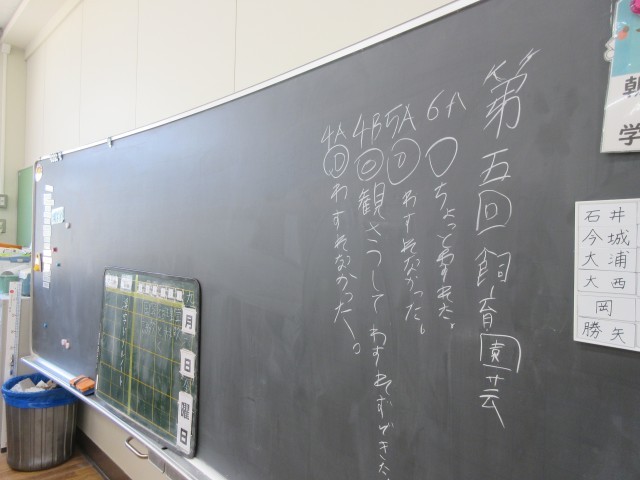 第五回飼育園芸
6A
ちょっとわすれた。
5A
わすれなかった。
4B
観さつしてわすれずできた
4A
わすれなかった。
月
日
曜日
朝
学
石井
今城
大浦
大西
岡
勝矢